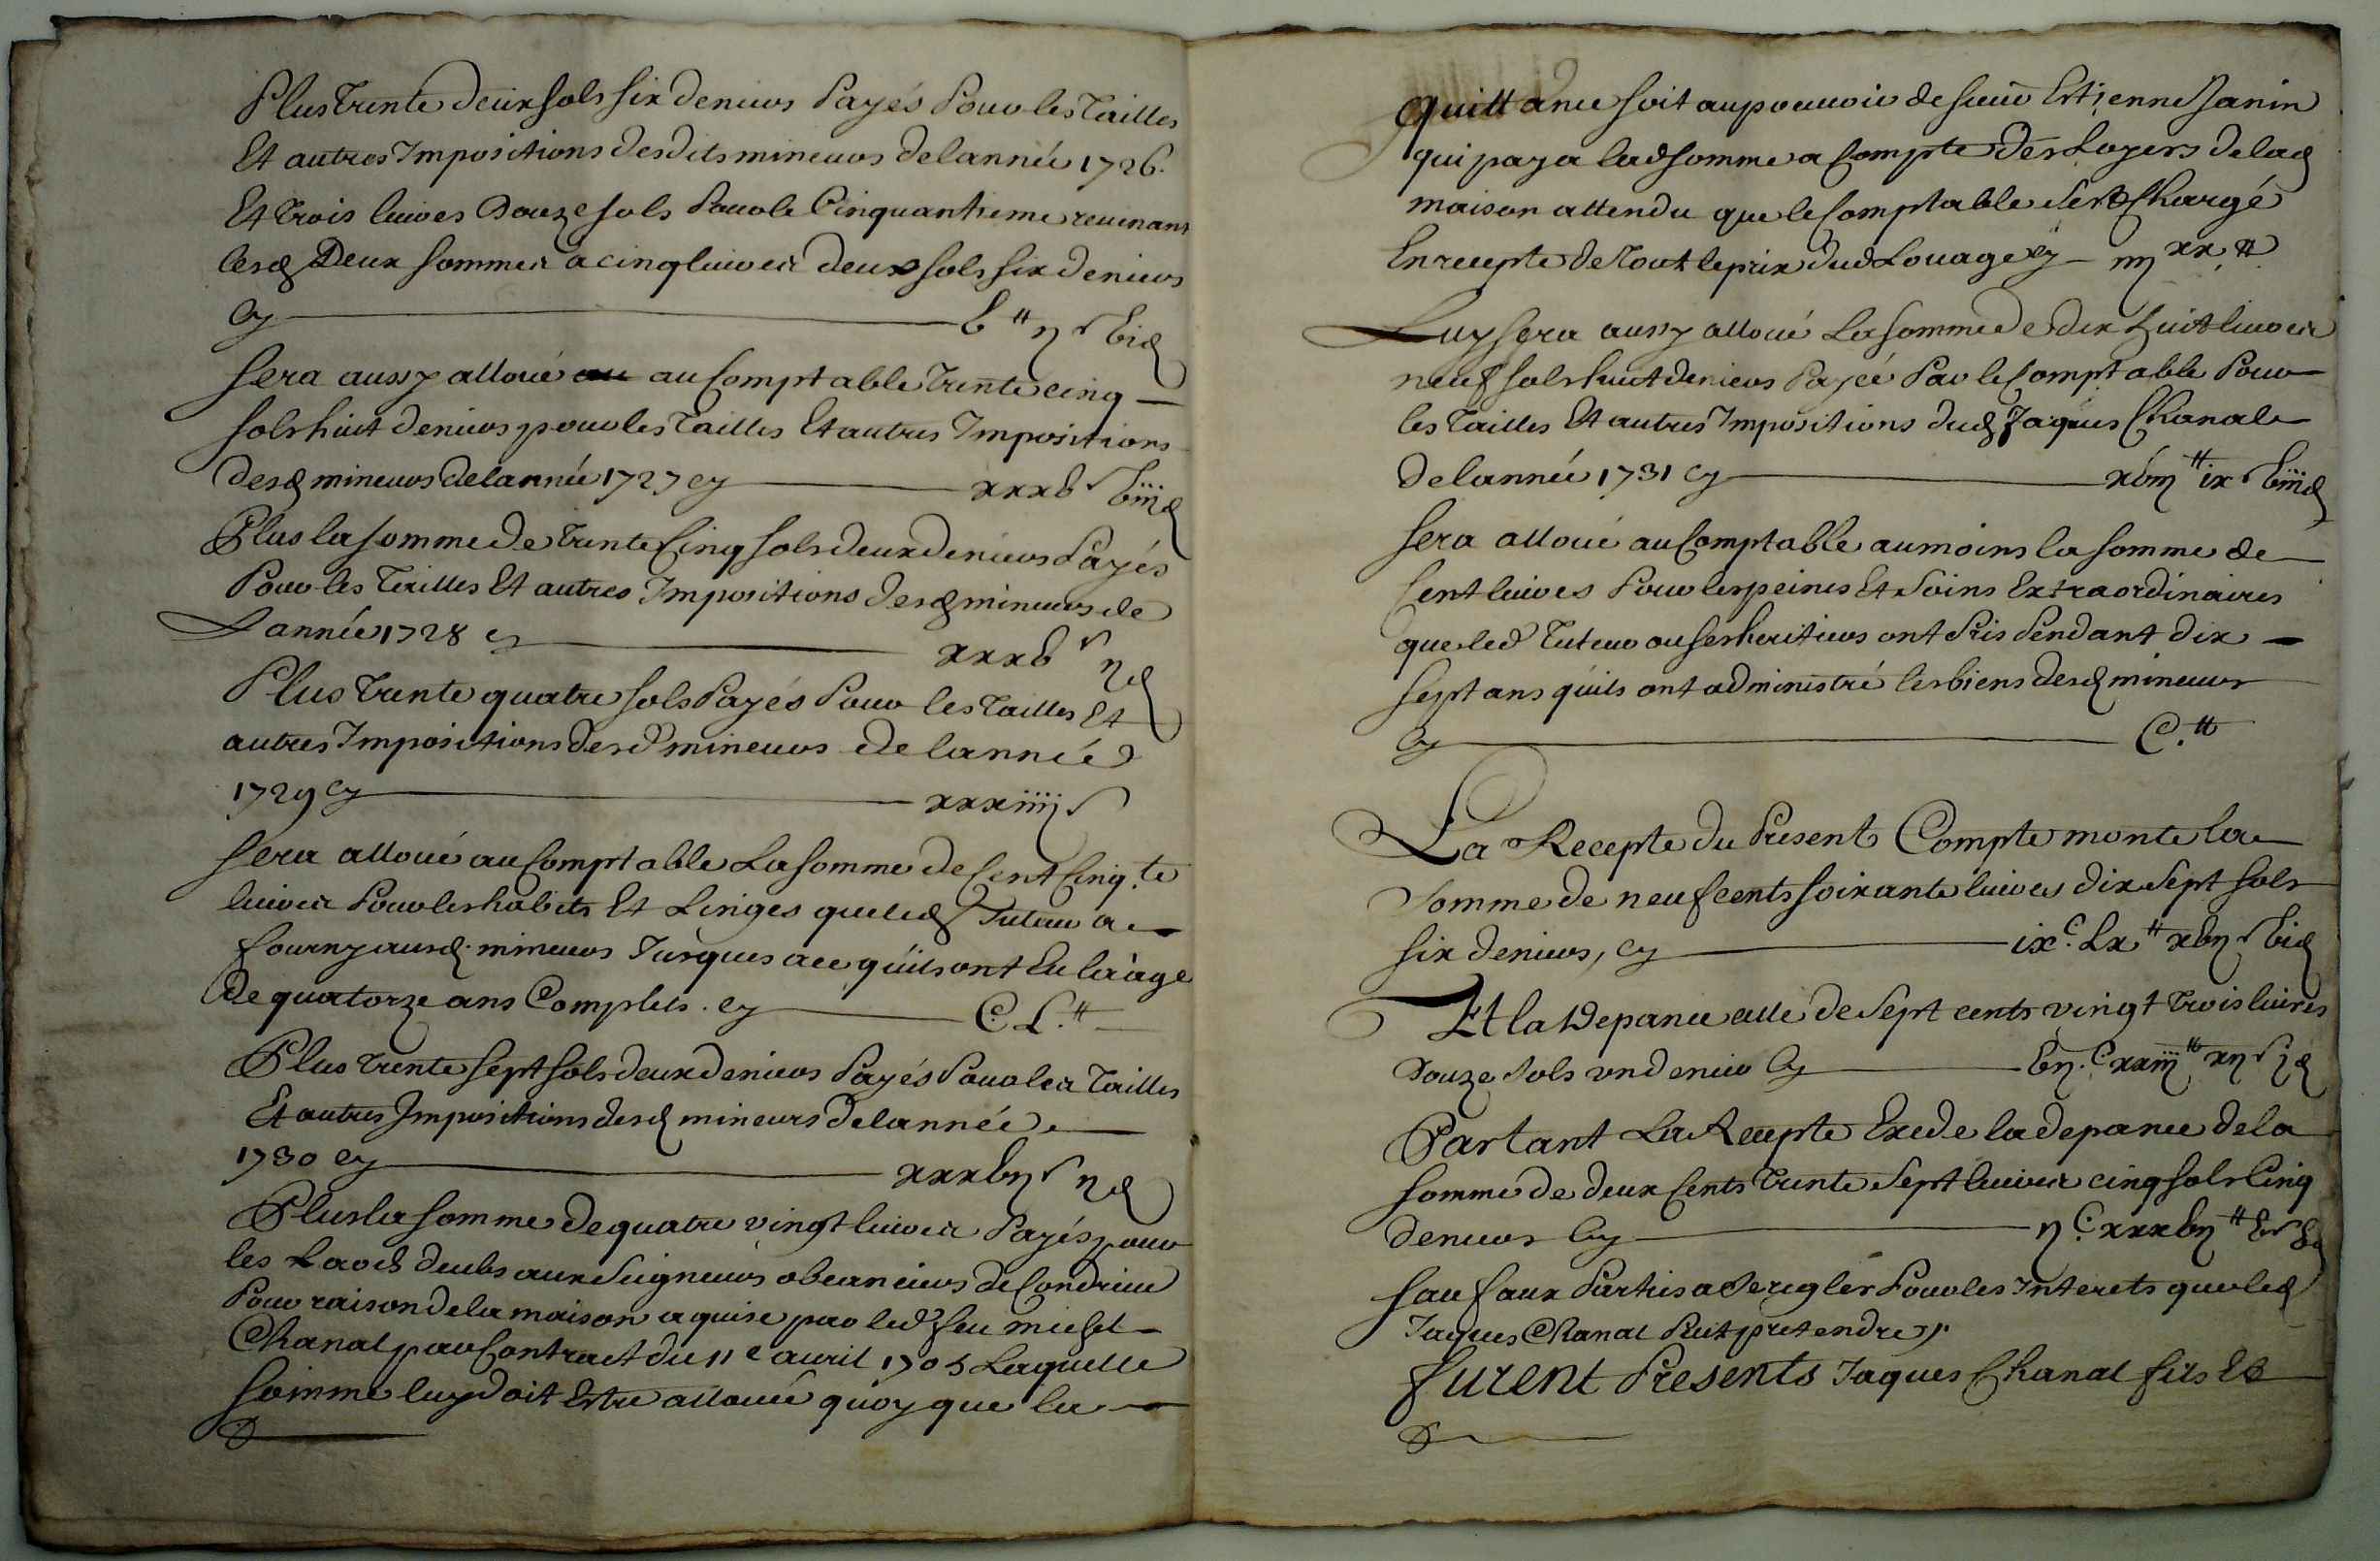 Plus trente deux sols six deniers Payés Pour les Tailles
Et autres Impositions desdits mineurs de lannée 1726.
Et trois livres Douze sols Pour le Cinquantieme revenant
lesd Deux sommes a cinq livres deux sols six deniers
Cy b ₶ ij s bi d
Sera aussy alloué au Comptable trente cinq
sols huit deniers pour les Tailles Et autres Impositions
desd mineurs de lannée 1727 cy xxxb s biij d
Plus la somme de trente Cinq sols deux deniers Payés
Pour les Tailles Et autres Impositions desd mineurs de
Lannée 1728 cy xxxb s ij d
Plus trente quatre sols Payés Pour les Tailles Et
autres Impositions desd mineurs de lannée
1729 Cy xxxiiij s
Sera alloué au Comptable La somme de Cent Cinq.te
livres Pour les habits Et Linges que led Tuteur a
fourny ausd. mineurs Jusques a ce quils ont Eu laage
de quatorze ans Complets. cy C. L. ₶
Plus trente sept sols deux deniers Payés Pour les Tailles
Et autres Impositions desd mineurs de lannée
1730 cy xxxbij s ij d
Plus la somme de quatre vingt livres Payés pour
les Laods deubs aux Seigneurs obeanciers de Condrieu
Pour raison de la maison aquise par led feu michel
Chanal par Contract du 11e avril 1705 Laquelle
somme luy doit Estre allouée quoy que la
quittance soit au pouvoir de sieur Estienne Janin
qui paya lad somme a Compte des Loyers de lad
maison attendu que le Comptable sest Chargé
En recepte de Tout le prix dud Louage cy iiij xx ₶
Luy sera aussy alloué La somme de dix huit livres
neuf sols huit deniers Payée Par le Comptable Pour
les Tailles Et autres Impositions dud Jaques Chanal
de lannée 1731 cy xbiij ₶ ix s biij d
Sera alloué au Comptable au moins la somme de
Cent livres Pour les peines Et Soins Extraordinaires
que led Tuteur ou ses heritiers ont Pris Pendant dix
sept ans quils ont administré les biens desd mineurs
Cy C. ₶
La Recepte du Present Compte monte la
Somme de neuf cents soixante livres dix sept sols
six deniers, cy ixc. Lx ₶ xbij s bi d
Et la Depance alle de Sept cents vingt trois livres
Douze sols un denier Cy bij.c xxiij ₶ xij s j d
Partant La Recepte Excede la depance de la
somme de deux Cents trente Sept livres cinq sols Cinq
deniers Cy ij c. xxxbij ₶ b s b d
Sauf aux Parties a Se regler Pour les Interets que led
Jaques Chanal Peut pretendre
furent Presents Jaques Chanal fils Et